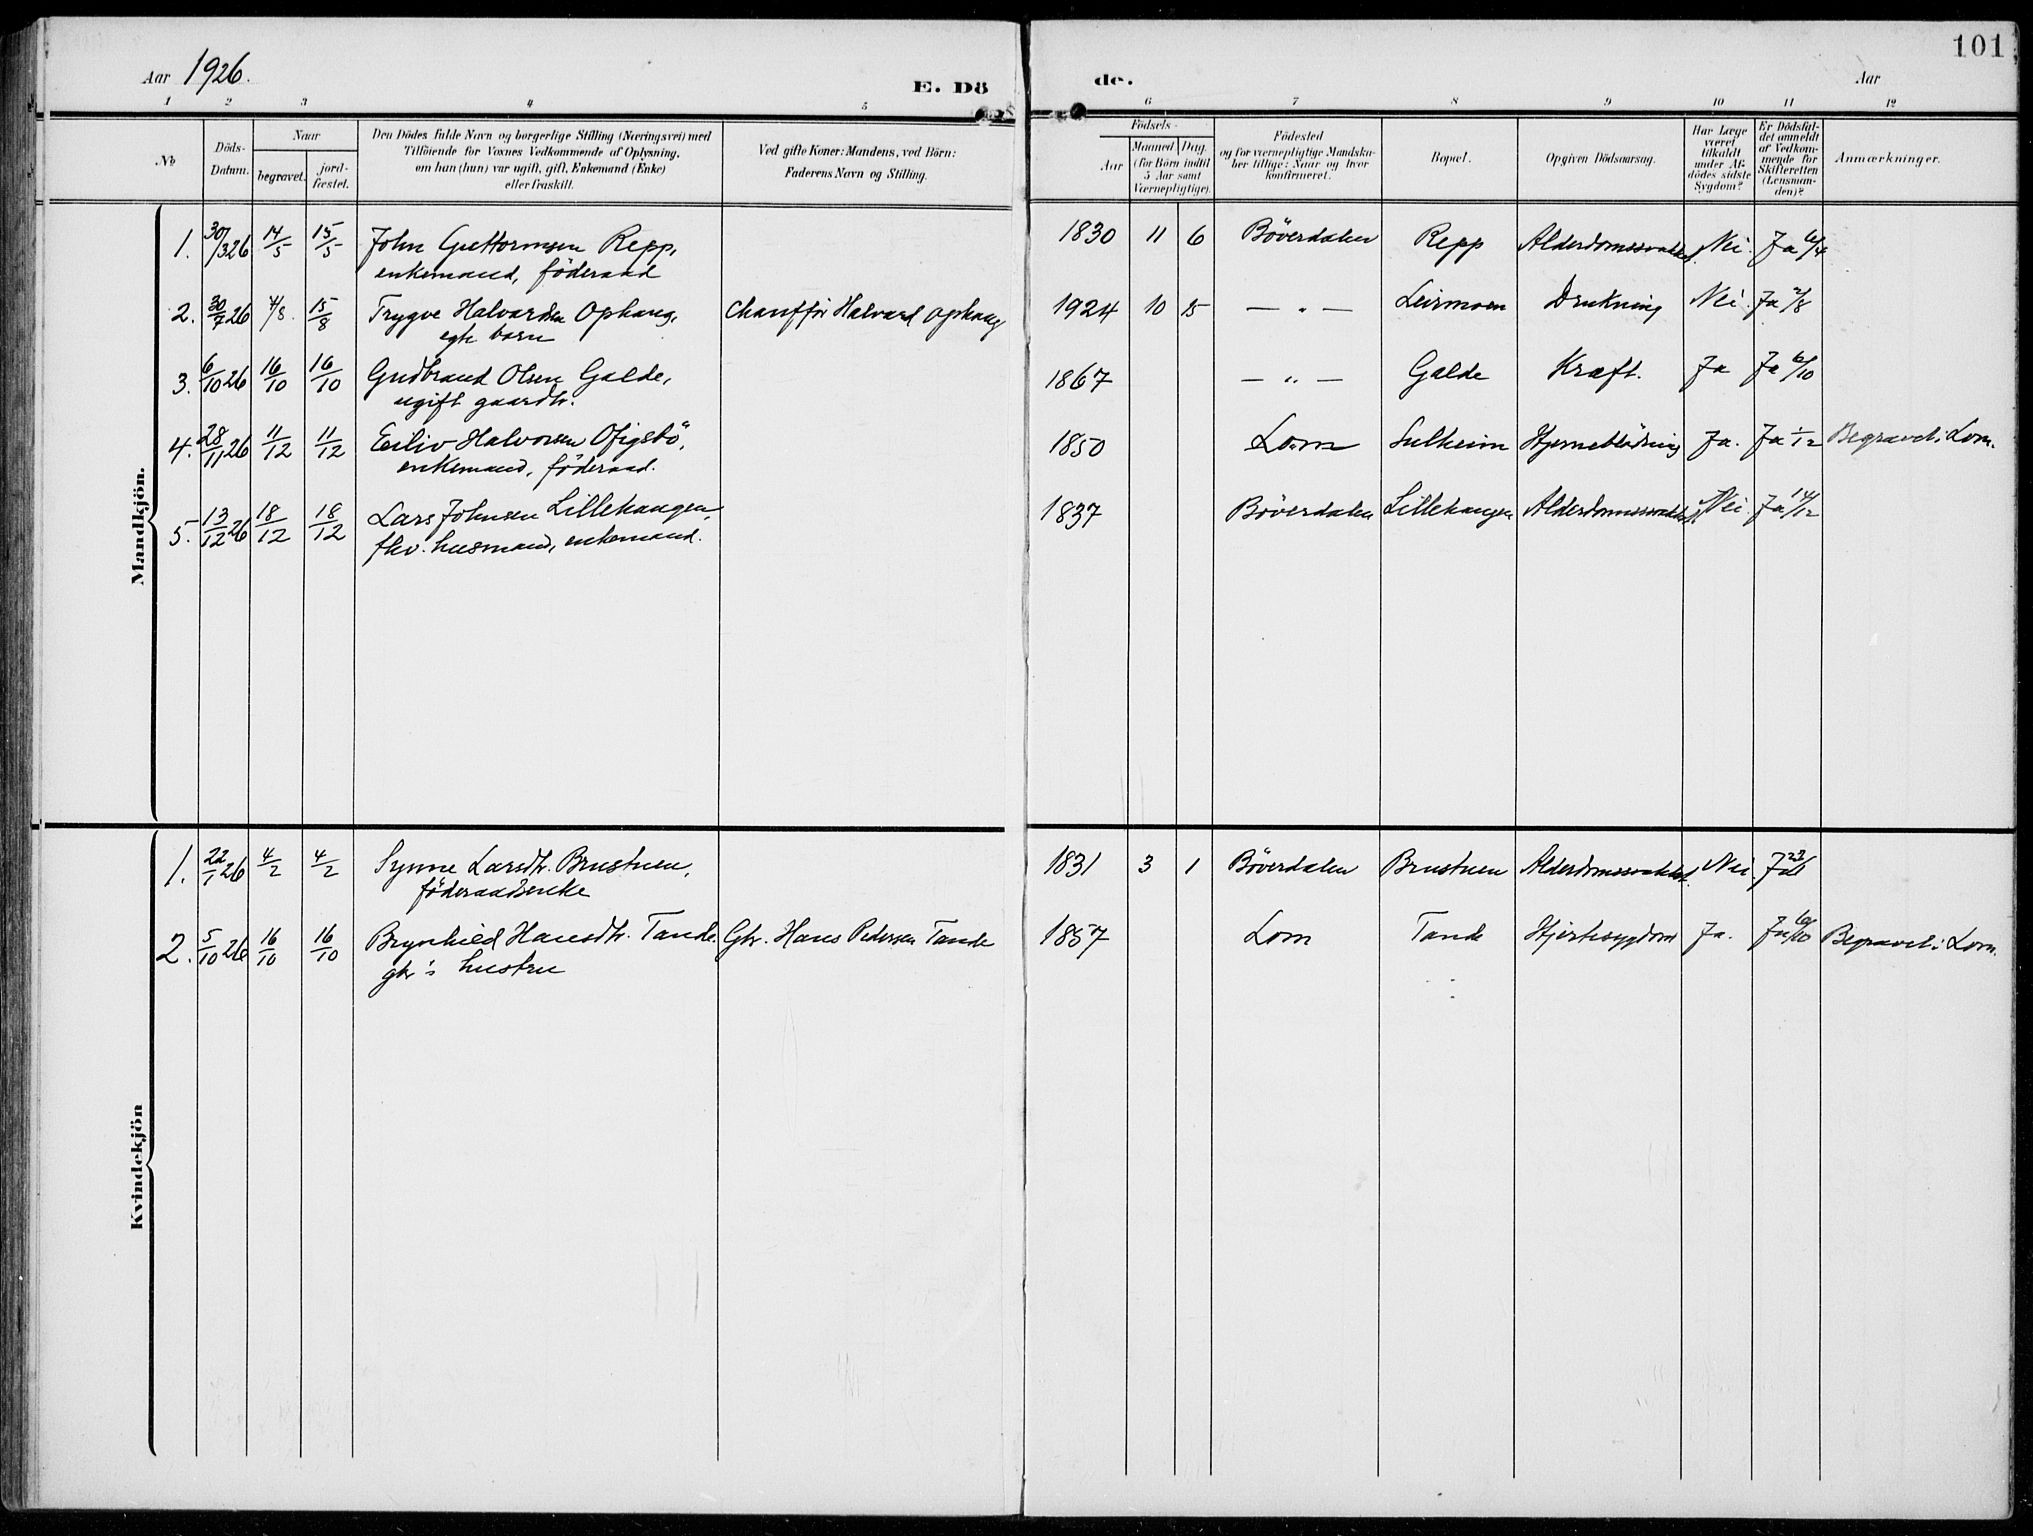 Aar 1926.
E. Dö
de.
Aar
101
1 2 3 4 5 6 7 8 9 10 11 12
No
Döds-
Datum.
Naar
begravet.
jord-
fæstet.
Den Dödes fulde Navn og borgerlige Stilling (Næringsvei) med
Tilföiende for Voxnes Vedkommende af Oplysning,
om han (hun) var ugift, gift, Enkemand (Enke)
eller fraskilt.
Ved gifte Koner: Mandens, ved Börn:
Faderens Navn og Stilling.
Födsels-
Aar
Maaned Dag.
(for Börn indtil
5 Aar samt
Værnepligtige).
Födested
og for værnepligtige Mandska-
ber tillige: Naar og hvor
konfirmeret.
Bopæl.
Opgiven Dödsaarsag.
Har Læge
været
tilkaldt
under Af-
dödes sidste
Sygdom?
Er Dödsfal-
det anmeldt
af Vedkom-
mende for
Skifteretten
(Lensman-
den)?
Anmærkninger.
Mandkjön.
1. 30/3 26 14/5 15/5 John Guttormsen Repp, 1830 11 6 Böverdalen Repp Alderdomssvakhet Nei. Ja 6/4
enkemand, föderaad
2. 30/7 26 4/8. 15/8 Trygve Halvardsen Ophaug, Chaufför Halvard Ophaug 1924 10 15 — " — Leirmoen Drukning Nei. Ja 2/8
egte barn
3. 6/10 26 16/10 16/10 Gudbrand Olsen Galde, 1867 — " — Galde Kræft. Ja Ja 6/10
ugift gaardbr.
4. 28/11 26 11/12 11/12 Eiliv Halvorsen Ofigsbö, 1850 Lom Sulheim Hjerneblödning Ja. Ja 1/12 Begravet i Lom.
enkemand, föderaad.
5. 13/12 26 18/12 18/12 Lars Johnsen Lillehaugen, 1837 Böverdalen Lillehaugen Alderdomssvakhet Nei. Ja 14/12
fhv. husmand, enkemand.
Kvindekjön
1. 22/1 26 4/2 4/2 Synne Larsdtr. Brustuen, 1831 3 1 Böverdalen Brustuen Alderdomssvakhet. Nei. Ja 23/1
föderaadsenke
2. 5/10 26 16/10 16/10 Brynhild Hansdtr. Tande. Gbr. Hans Pedersen Tande 1857 Lom Tande Hjertesygdom Ja. Ja 6/10 Begravet i Lom.
gbr's hustru